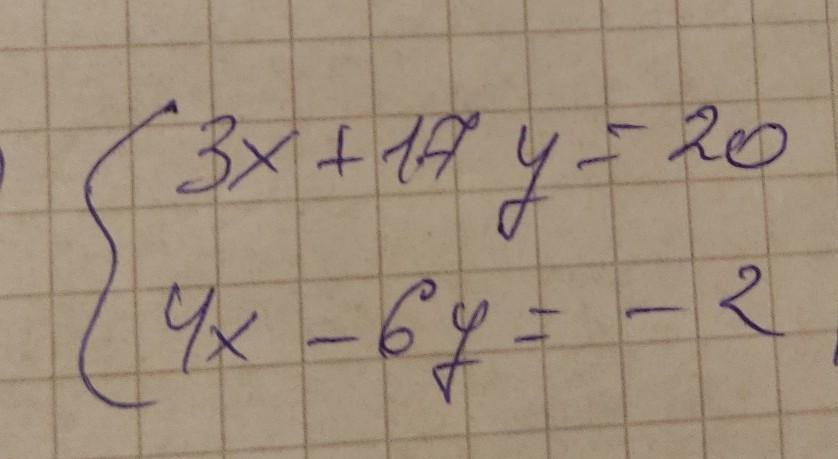 3x + 17y = 20
4x - 6y = -2